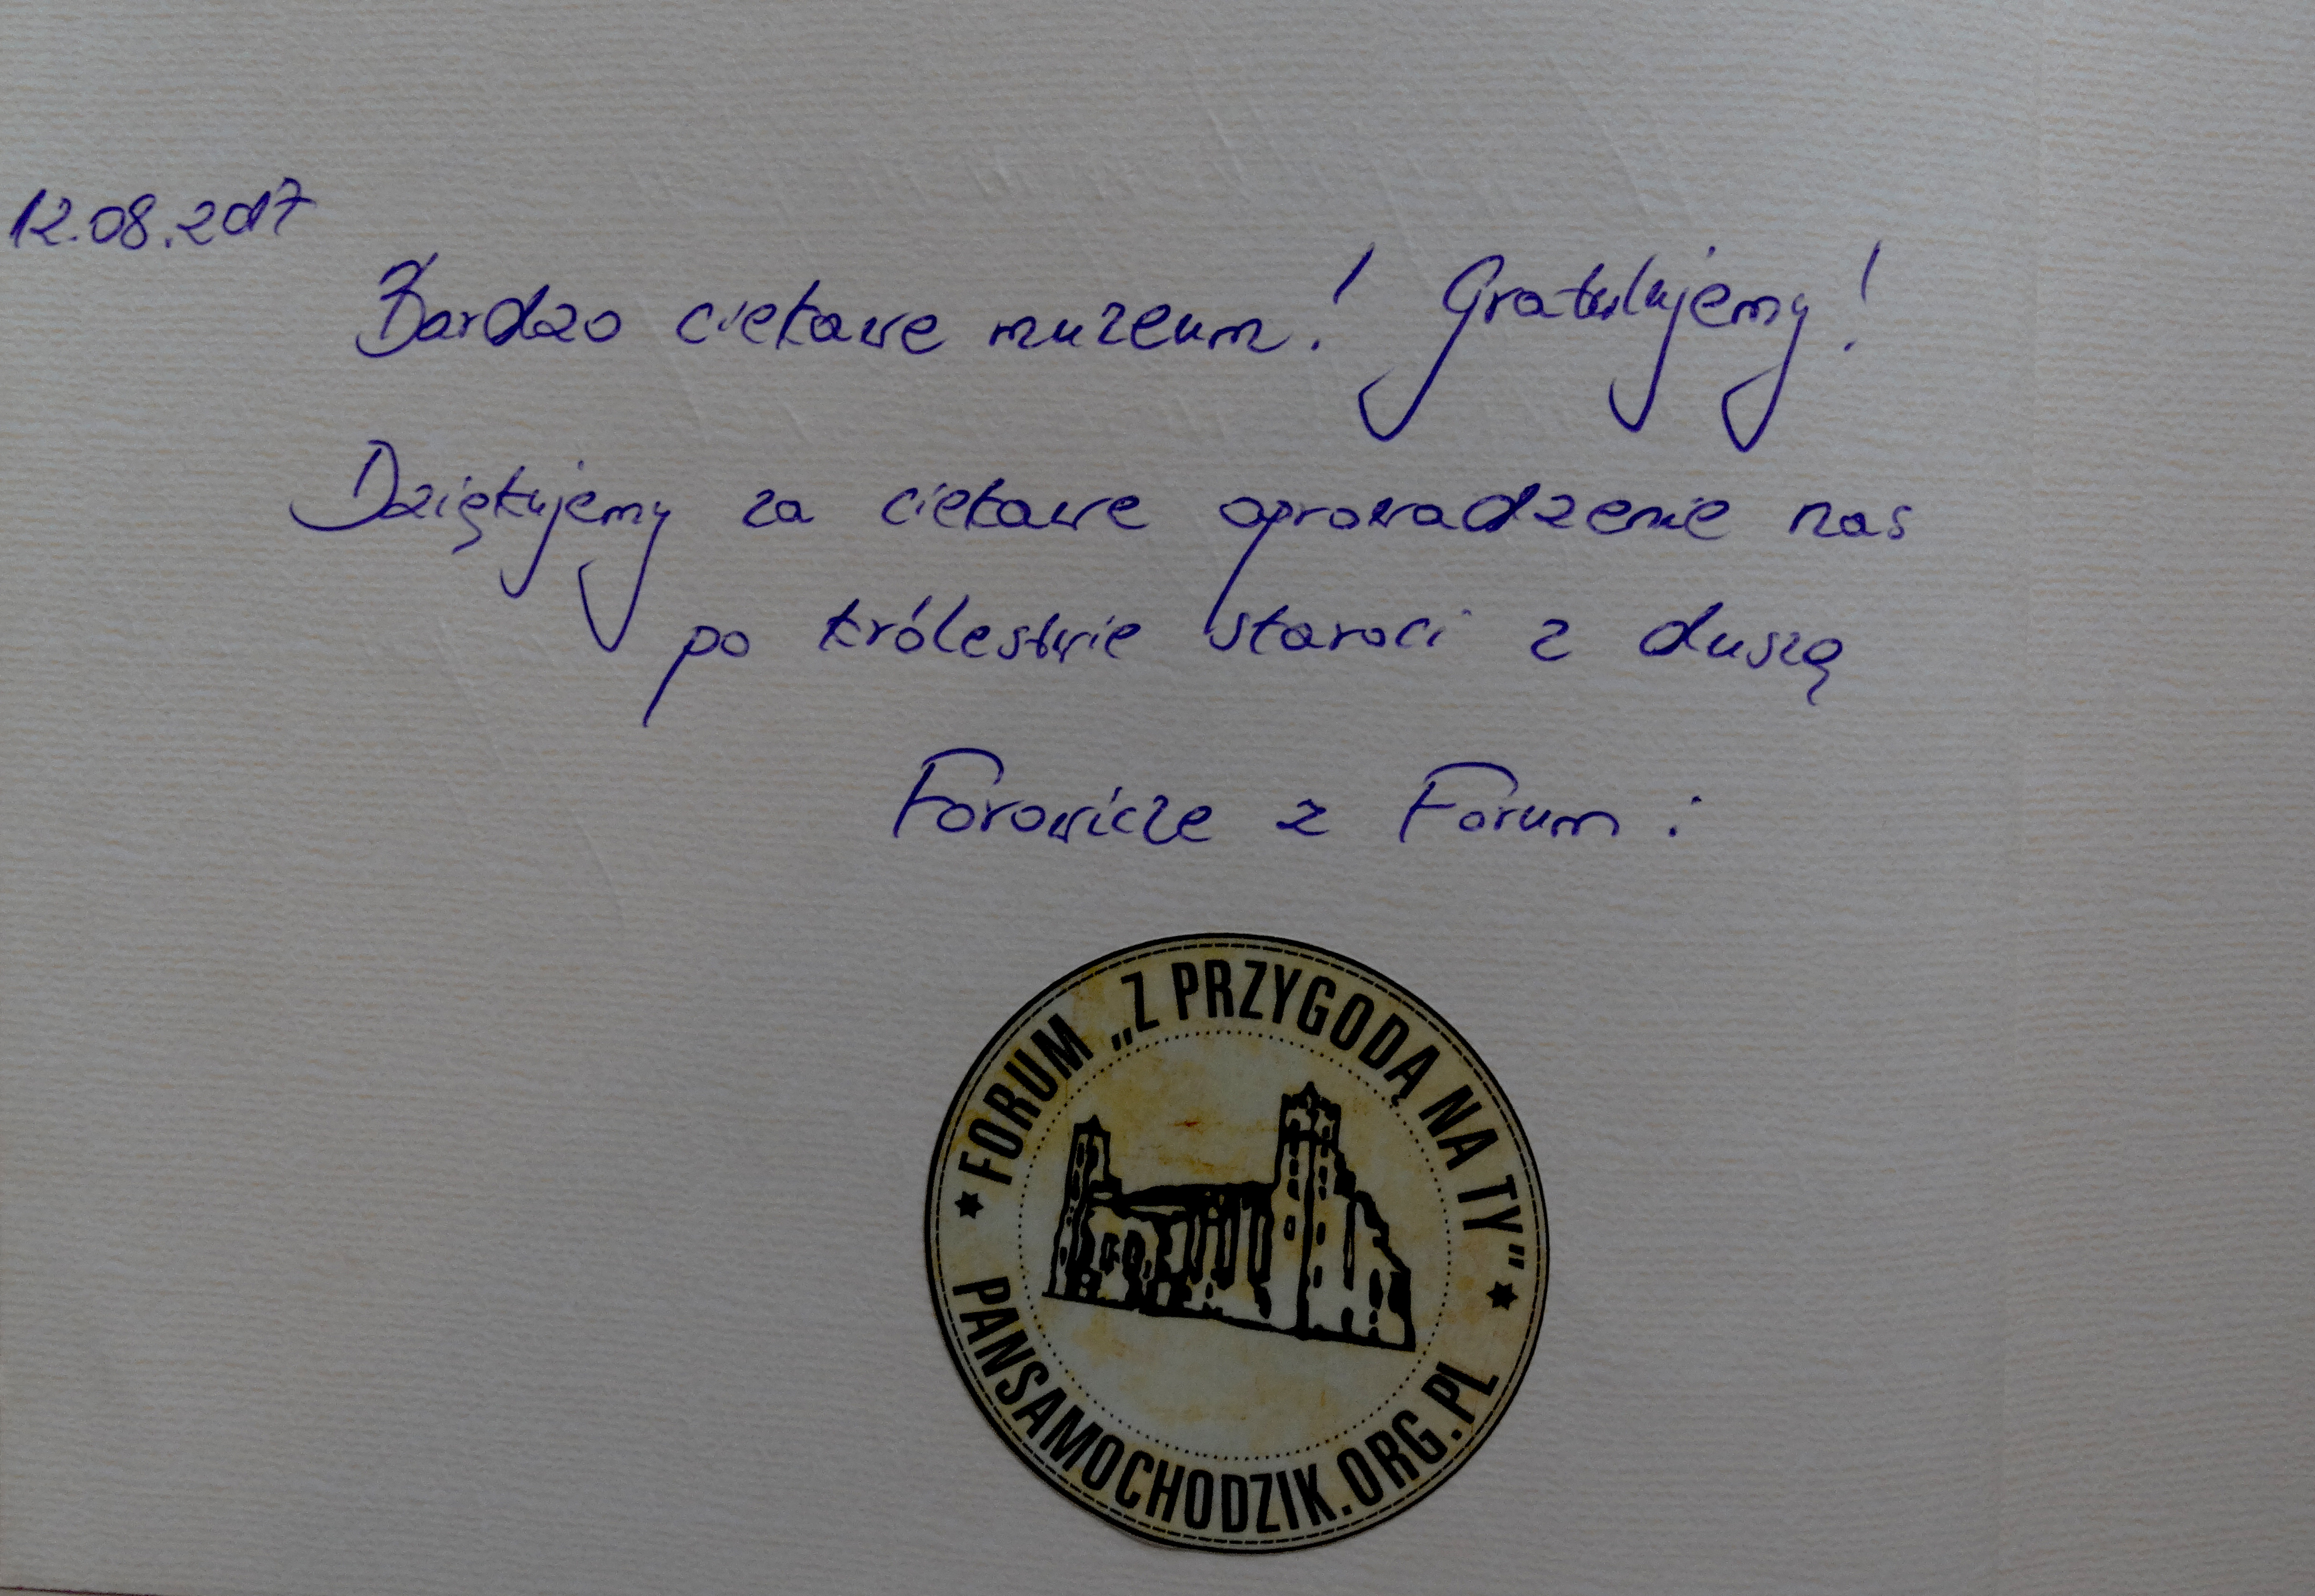 12.08.2017
Bardzo ciekawe muzeum! Gratulujemy!
Dziękujemy za ciekawe oprowadzenie nas
po królestwie staroci z duszą
Forowicze z Forum:
★ FORUM „Z PRZYGODĄ NA TY" ★
PANSAMOCHODZIK.ORG.PL